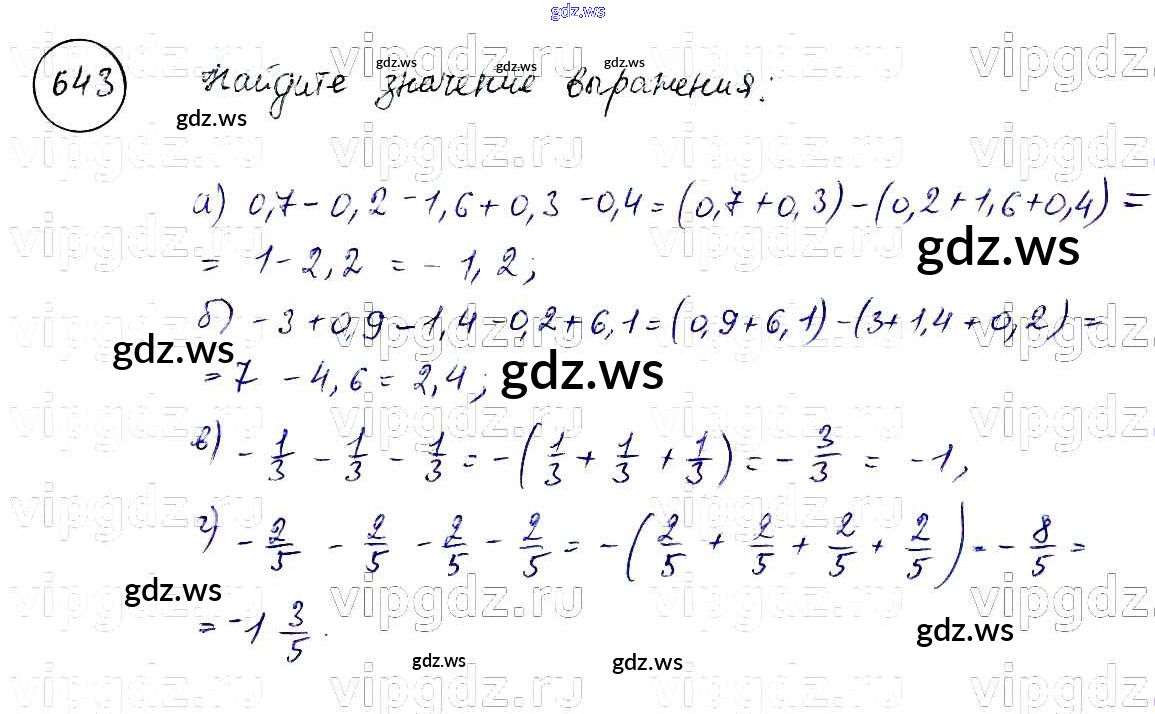 gdz.ws
643 Найдите значение выражения:
gdz.ws gdz.ws gdz.ws gdz.ws
vipgdz.ru
а) 0,7 - 0,2 - 1,6 + 0,3 - 0,4 = (0,7 + 0,3) - (0,2 + 1,6 + 0,4) =
gdz.ws
= 1 - 2,2 = - 1,2;
б) - 3 + 0,9 - 1,4 - 0,2 + 6,1 = (0,9 + 6,1) - (3 + 1,4 + 0,2) =
gdz.ws gdz.ws
= 7 - 4,6 = 2,4;
в) - 1/3 - 1/3 - 1/3 = - (1/3 + 1/3 + 1/3) = - 3/3 = - 1,
г) - 2/5 - 2/5 - 2/5 - 2/5 = - (2/5 + 2/5 + 2/5 + 2/5) = - 8/5 =
gdz.ws gdz.ws
= - 1 3/5.
gdz.ws gdz.ws